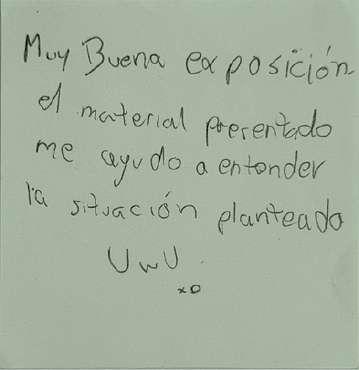 Muy Buena exposición
el material presentado
me ayudo a entender
la situación planteado
UwU.
xD